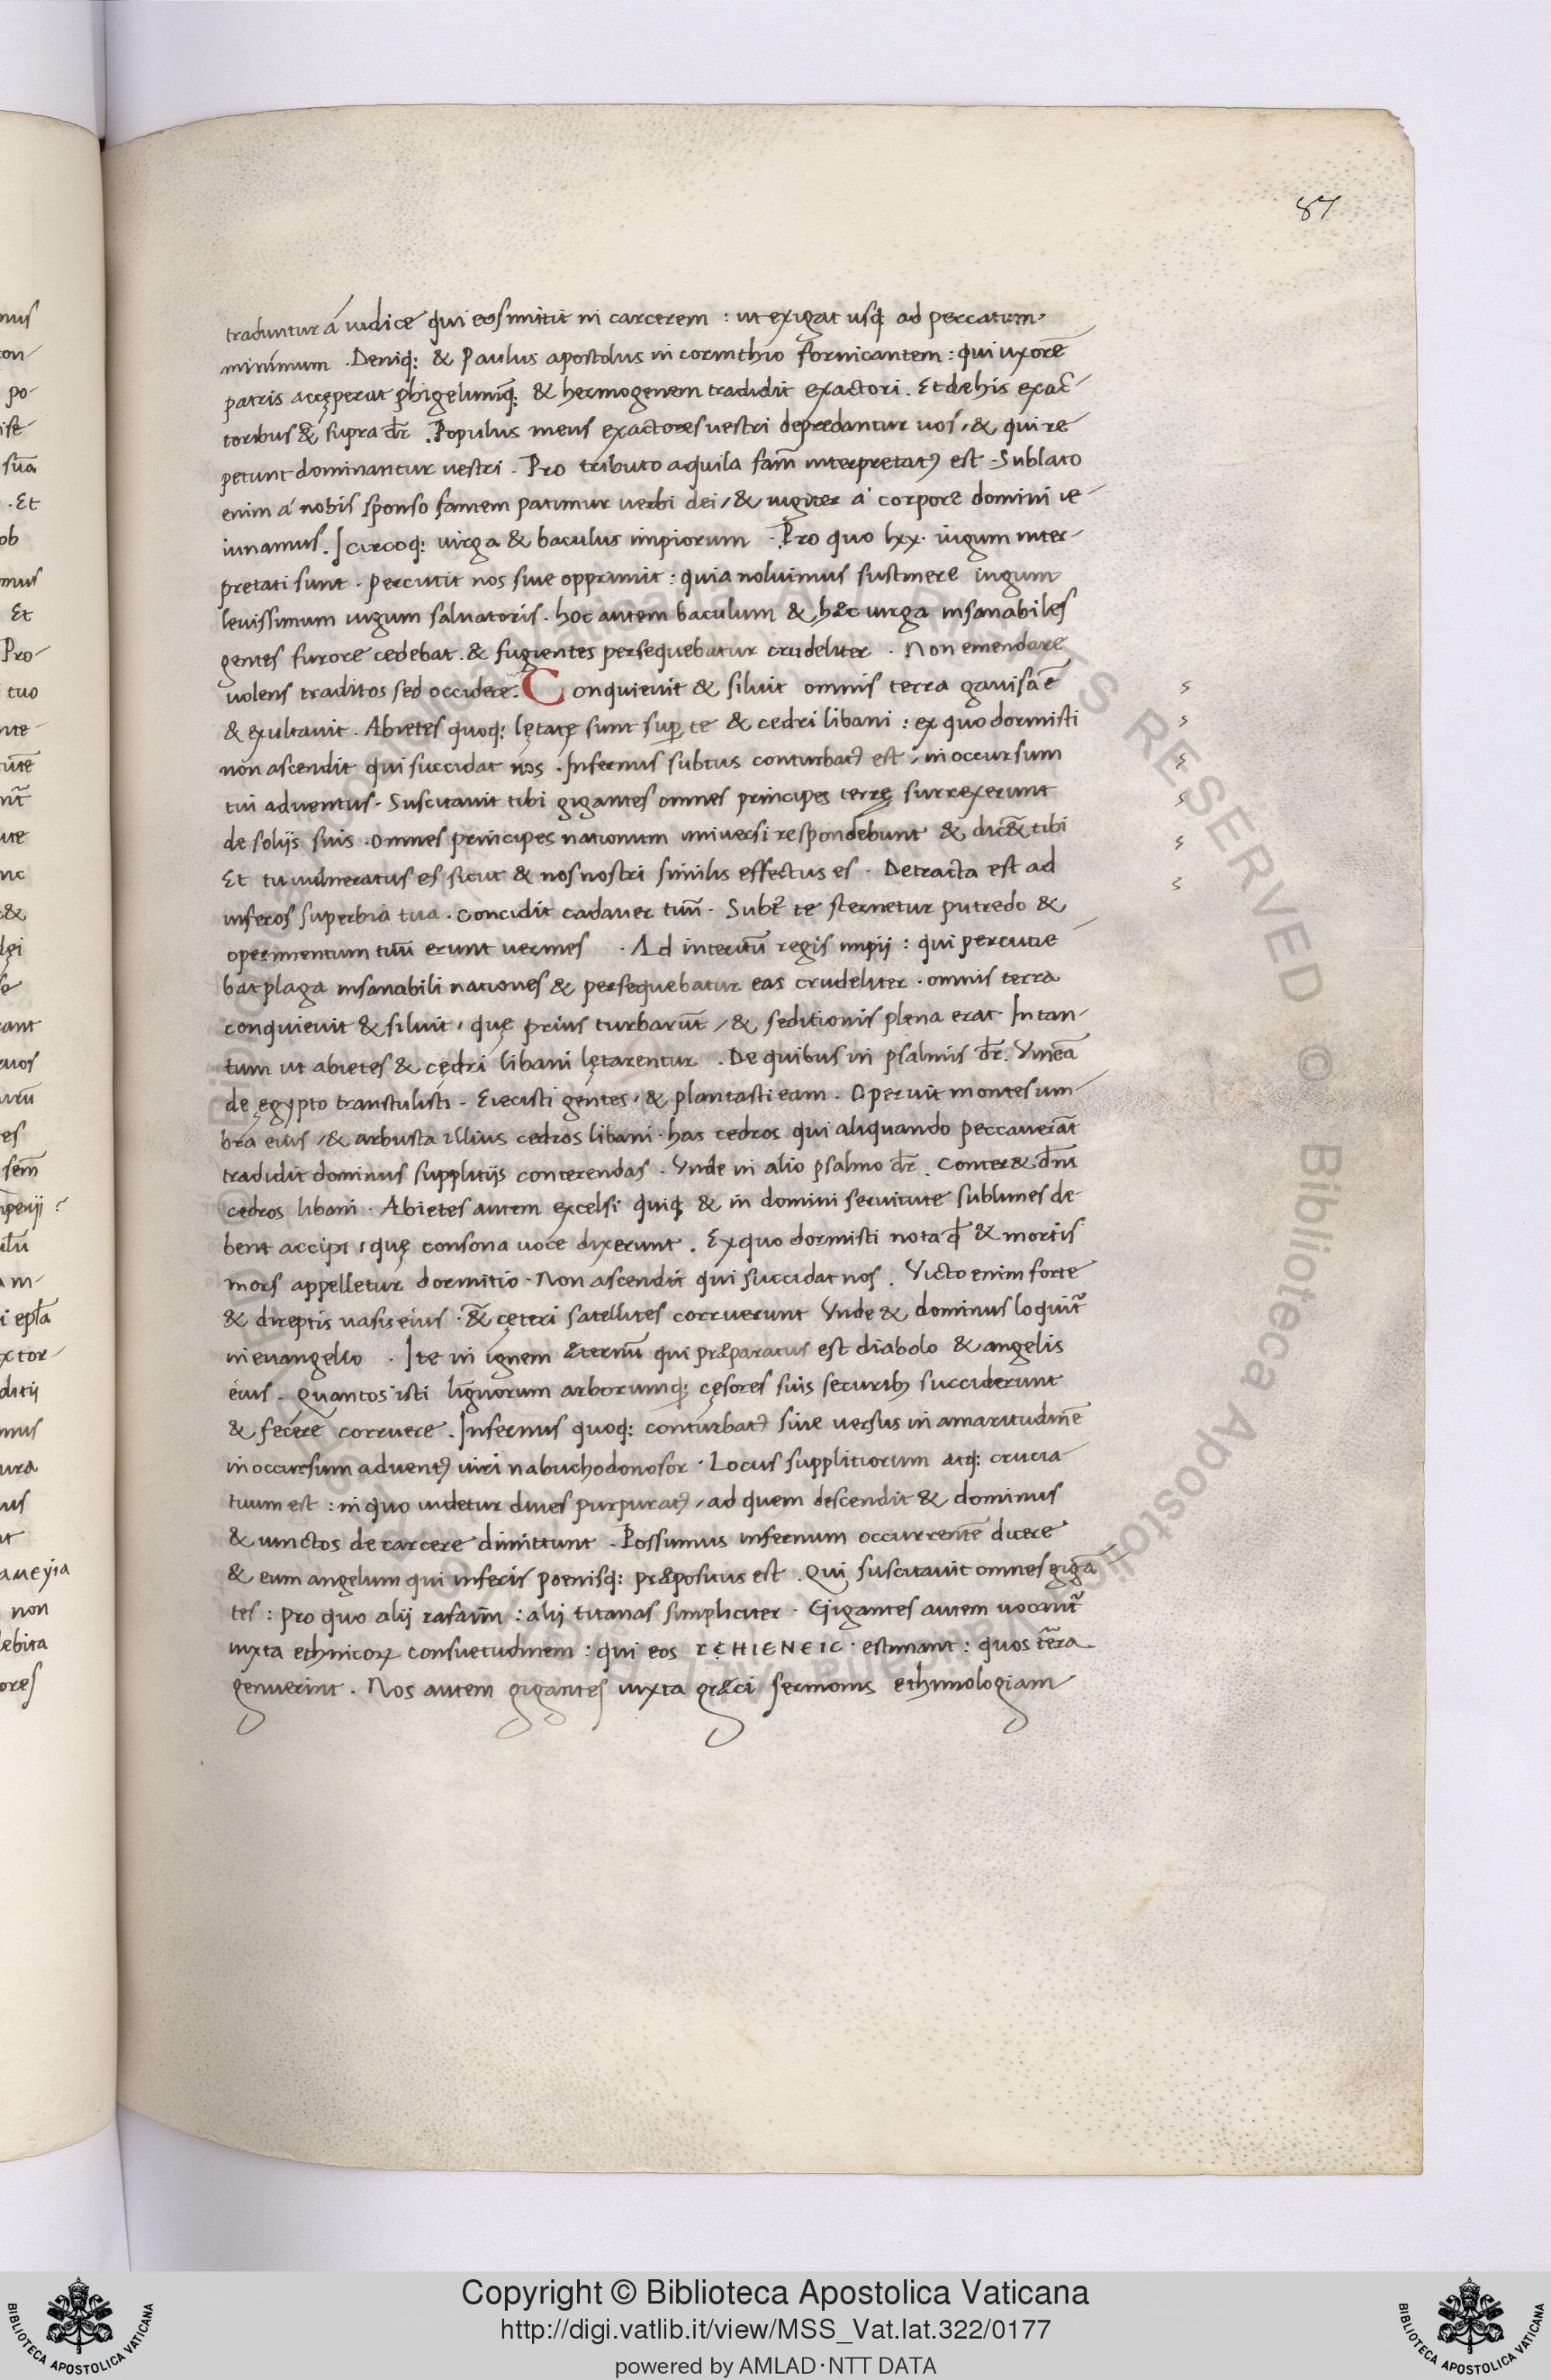 87
traduntur á iudice qui eos mittit in carcerem : ut exigat usq; ad peccatum
minimum . Deniq: & Paulus apostolus in corinthio fornicantem : qui uxorē
patris accęperat phigelumq̄: & hermogenem tradidit exactori . Et de his exac-
toribus & supra dr̄ . Populus meus exactores uestri depredantur uos , & qui re
petunt dominantur uestri . Pro tributo aquila fam̄ interpretatꝰ est . Sublato
enim á nobis sponso famem patimur uerbi dei , & iugiter a corpore domini ie-
iunamus . Icircoq: uirga & baculus impiorum . Pro quo lxx . iugum inter-
pretati sunt . percutit nos siue opprimit : quia noluimus sustinere iugum
leuissimum iugum saluatoris . hoc autem baculum & hæc uirga insanabiles
gentes furore cedebat . & fugientes persequebatur crudeliter . Non emendare
uolens traditos sed occidere . Conquieuit & siluit omnis terra gauisa ē
& exultauit . Abietes quoq: lętatę sunt sup̄ te & cedri libani : ex quo dormisti
non ascendit qui succidat nos . Infernus subtus conturbatꝰ est , in occursum
tui aduentus . Suscitauit tibi gigantes omnes principes terrę surrexerunt
de solijs suis . omnes principes nationum uniuersi respondebunt & dic&̄ tibi
Et tu uulneratus es sicut & nos nostri similis effectus es . Detracta est ad
inferos superbia tua . concidit cadauer tuū . Subt̄ te sternetur putredo &
operimentum tuū erunt uermes . Ad interitū regis impij : qui percutie-
bat plaga insanabili nationes & persequebatur eas crudeliter . omnis terra
conquieuit & siluit , quę prius turbarūt , & seditionis plena erat . In tan-
tum ut abietes & cędri libani lętarentur . De quibus in psalmis dr̄ . Vineā
de ęgypto transtulisti . Eiecisti gentes , & plantasti eam . Operuit montes um-
bra eius , & arbusta illius cedros libani . has cedros qui aliquando peccauerāt
tradidit dominus supplitijs conterendas . Vnde in alio psalmo dr̄ . Conter& dn̄s
cedros libani . Abietes autem excelsi quiq; & in domini seruitute sublimes de-
bent accipi , quę consona uoce dixerunt . Ex quo dormisti nota ꝙ & mortis
mors appelletur dormitio . Non ascendit qui succidat nos . Victo enim forte
& direptis uasis eius . &̄ cęteri satellites corruerunt Vnde & dominus loquit᷑
in euangelio . Ite in ignem æternū qui præparatus est diabolo & angelis
eius . Quantos isti lignorum arborumq; cęsores suis securibꝫ succiderunt
& fecere corruere . Infernus quoq: conturbatꝰ siue uersus in amaritudinē
in occursum aduentꝰ uiri nabuchodonosor . Locus supplitiorum atq: crucia
tuum est : in quo uidetur diues purpuratꝰ , ad quem descendit & dominus
& uinctos de carcere dimittunt . Possumus infernum occurrentē dicere
& eum angelum qui inferis poenisq: præpositus est . Qui suscitauit omnes gigā-
tes : pro quo alij rafaim : alij titanas simpliciter . Gigantes autem uocant᷑
iuxta ethnicoꝝ consuetudinem : qui eos ΓΕΗΙΕΝΕΙϹ . estimant : quos terra
genuerint . Nos autem gigantes iuxta græci sermonis ethimologiam
Copyright © Biblioteca Apostolica Vaticana
http://digi.vatlib.it/view/MSS_Vat.lat.322/0177
powered by AMLAD·NTT DATA